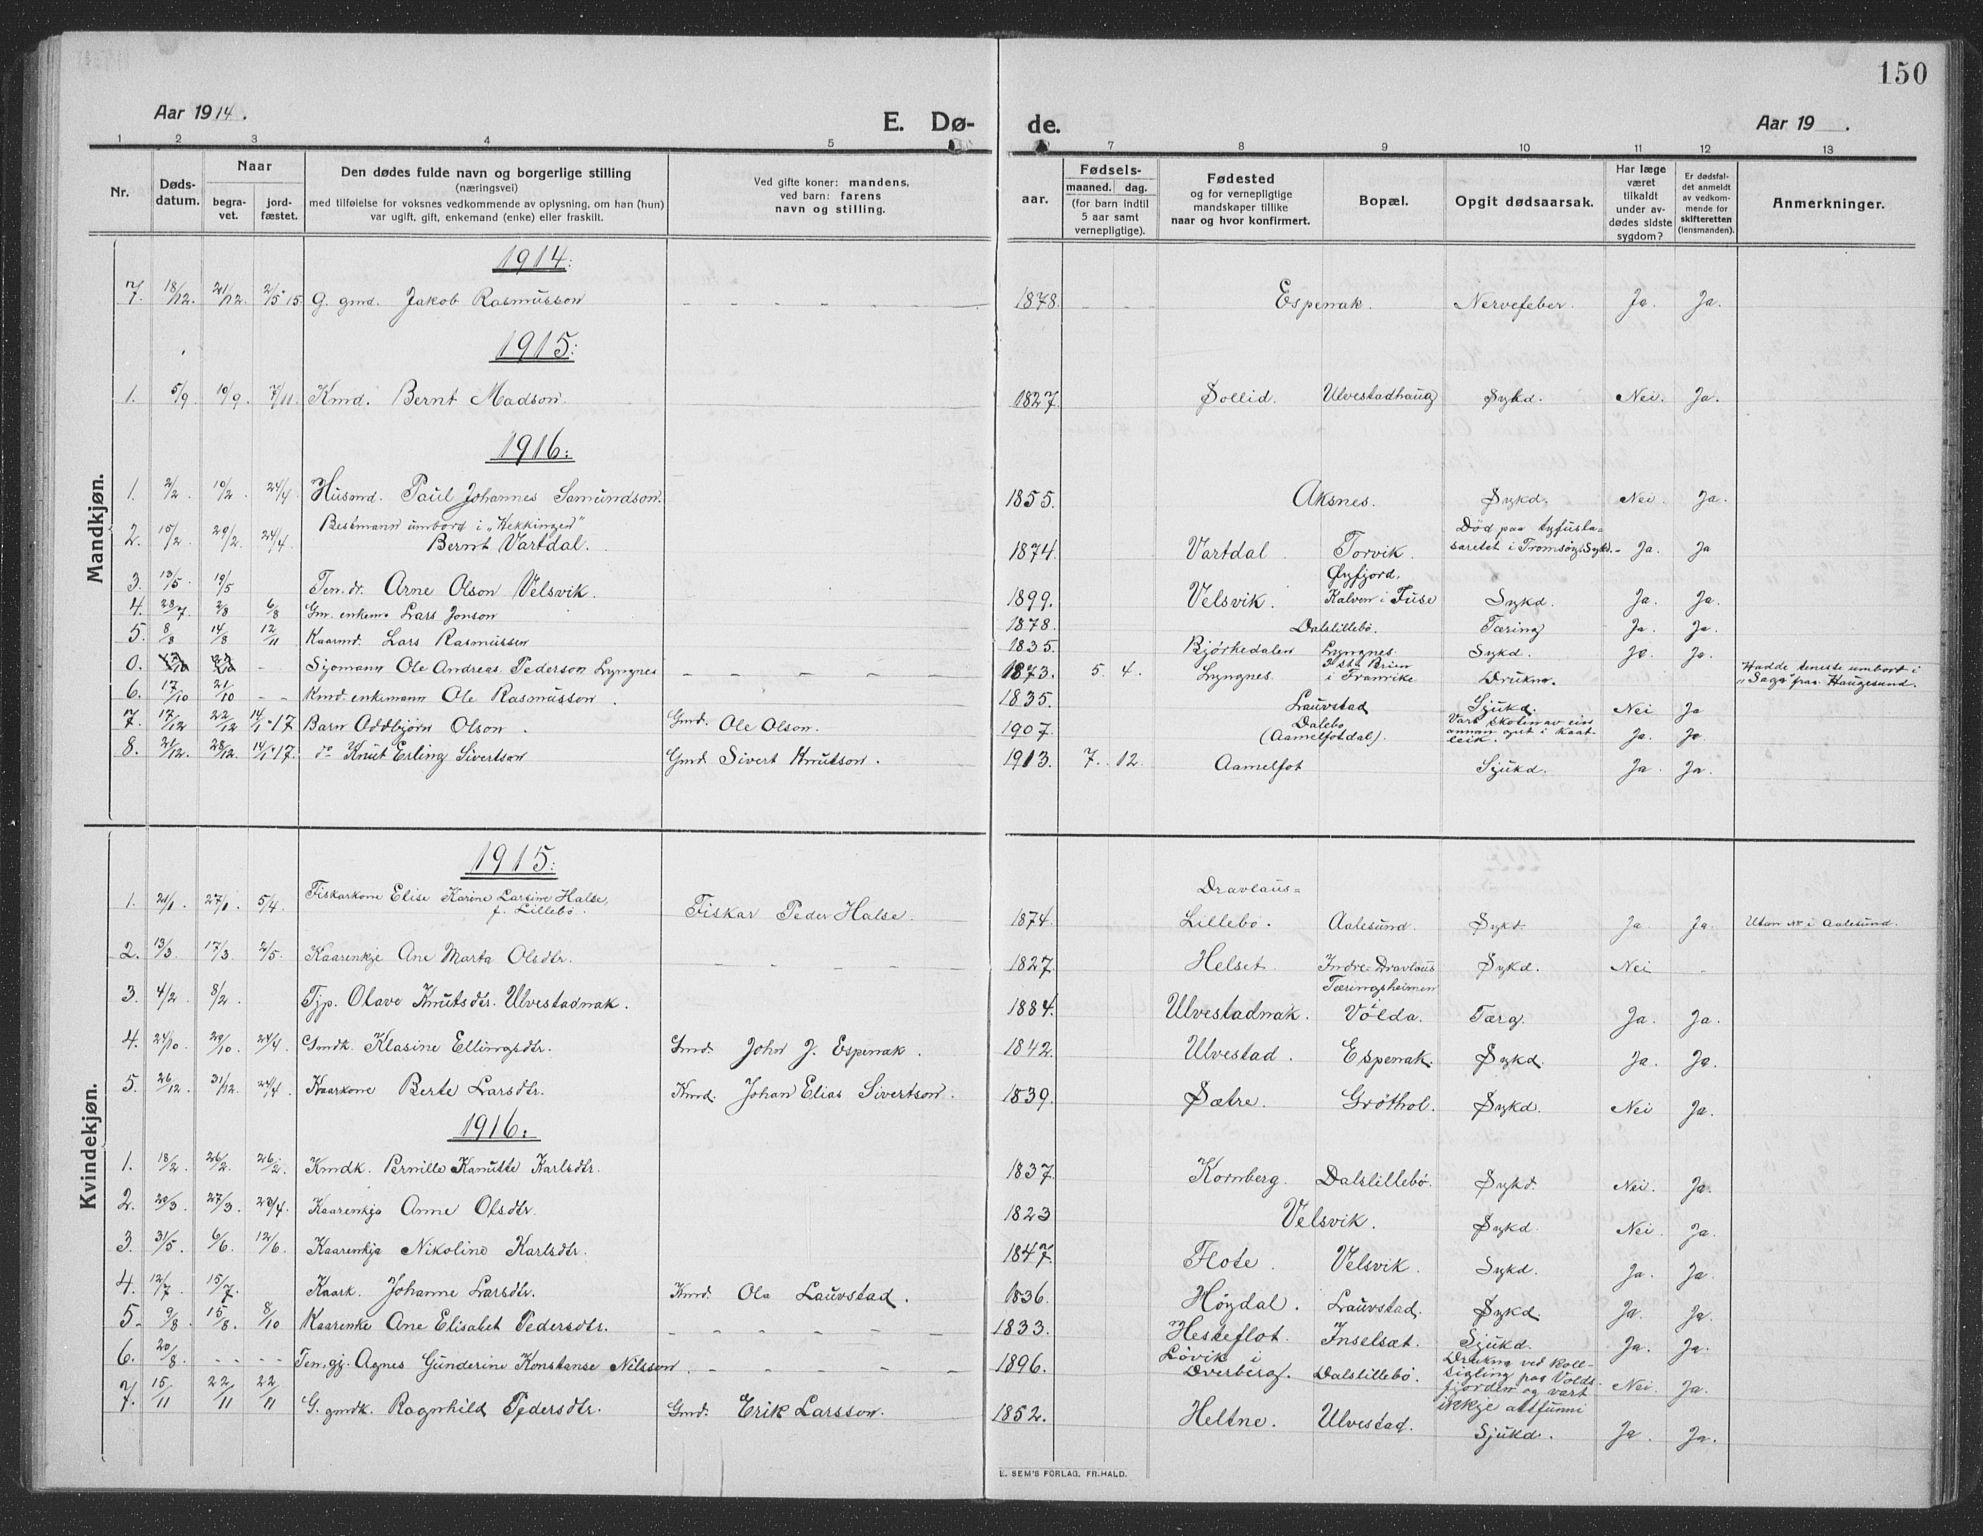 150
Aar 1914.
E. Dø-
de.
Aar 19 .
1 2 3 4 5 7 8 9 10 11 12 13
Nr.
Døds-
datum.
Naar
begra-
vet.
jord-
fæstet.
Den dødes fulde navn og borgerlige stilling
(næringsvei)
med tilføielse for voksnes vedkommende av oplysning, om han (hun)
var ugift, gift, enkemand (enke) eller fraskilt.
Ved gifte koner: mandens,
ved barn: farens
navn og stilling.
aar.
Fødsels-
maaned. dag.
(for barn indtil
5 aar samt
vernepligtige).
Fødested
og for vernepligtige
mandskaper tillike
naar og hvor konfirmert.
Bopæl.
Opgit dødsaarsak.
Har læge
været
tilkaldt
under av-
dødes sidste
sygdom?
Er dødsfal-
det anmeldt
av vedkom-
mende for
skifteretten
(lensmanden).
Anmerkninger.
Mandkjøn.
1914:
7. 18/12. 21/12. 2/5 15. G. gmd. Jakob Rasmusson 1878. Espenak Nervefeber. Ja. Ja.
1915:
1. 5/9. 10/9. 7/11. Kmd. Bernt Madson. 1827. Sollid. Ulvestadhaug Sykd. Nei. Ja.
1916:
1. 2/2. 10/2. 24/4. Husmd. Paul Johannes Samundson. 1855. Aksnes. Sykd. Nei. Ja.
Bestmann umbord i "Hekkingen"
2. 15/2. 29/2. 24/4. Bernt Vartdal. 1874. Vartdal Torvik. Død paa tyfusla-
saretet i Tromsø. Sykd. Ja. Ja
3. 13/5. 19/5 Ten. dr. Arne Olson Velsvik. 1899. Velsvik. Øyfjord.
Kalven i Fuse Sykd. Ja. Ja.
4. 28/7. 2/8 6/8 Gm. enkem. Lars Jonson 1878. Dalslillebø. Tæring Ja. Ja.
5. 8/8 14/8 12/11 Kaarmd. Lars Rasmussen 1835. Bjørkedalen Lyngnes. Sykd. Ja. Ja.
0. Sjomann Ole Andreas Pederson Lyngnes 1873. 5. 4. Lyngnes. i Frankrike Drukna. Hadde teneste umbord i
"Saga" fraa Haugesund.
6. 17/10 21/10 Kmd. enkemann Ole Rasmusson. 1835. Lauvstad Sjukd. Nei Ja
7. 17/12 22/12 14/1-17 Barn Oddbjørn Olson. Gmd. Ole Olson. 1907. Dalebø
(Aamelfotdal). Vart skoten av ein
annan gut i kaat-
leik. Ja. Ja.
8. 21/12. 28/12. 14/1-17. do Knut Erling Sivertson Gmd Sivert Knutson. 1913. 7. 12. Aamelfot Sjukd. Ja. Ja.
Kvindekjøn.
1915:
1. 21/1. 27/1. 5/4. Fiskarkone Elise Karine Larsine Halse,
f. Lillebø. Fiskar Peder Halse. 1874. Dravlaus=
Lillebø. Aalesund. Sykd. Ja. Ja. Utan Nr i Aalesund.
2. 13/3. 17/3. 2/5. Kaarenkje Ane Marta Olsdtr. 1827. Helset. Indre-Dravlaus Sykd. Nei
3. 4/2. 8/2. Tjp. Olave Knutsdtr. Ulvestadnak. 1884. Ulvestadnak. Tæringsheimen
i Volda. Tærg. Ja. Ja.
4. 24/10. 29/10. 24/4. Gmdk. Klasine Ellingsdtr. Gmd. John J. Espenak. 1842. Ulvestad. Espenak. Sykd. Ja. Ja.
5. 26/12. 31/12. 24/4. Kaarkone Berte Larsdtr. Kmd. Johan Elias Sivertson. 1839. Sætre. Grøthol. Sykd. Nei Ja.
1916:
1. 18/2. 26/2. 26/2. Kmdk. Pernille Kanutte Karlsdtr. 1837. Kornberg. Dalslillebø. Sykd. Nei. Ja.
2. 20/3. 27/3. 28/4. Kaarenkja Anne Olsdtr. 1823 Velsvik. Sykd. Nei. Ja.
3. 31/5. 6/6. 12/6. Kaarenkja Nikoline Karlsdtr. 1847. Flote. Velsvik. Sykd. Ja. Ja.
4. 12/7. 15/7. Kaark. Johanne Larsdtr. Kmd. Ola Lauvstad. 1836. Høydal. Lauvstad. Sykd. Ja. Ja.
5. 9/8 15/8. 8/10 Kaarenke Ane Elisabet Pedersdtr. 1833. Hesteflot. Inselsæt. Sjukd. Ja. Ja.
6. 20/8. Ten. gj. Agnes Gunderine Konstanse Nilsson 1896. Løvik i
Dverberg. Dalslillebø. Drukna ved koll-
sigling paa Volds-
fjorden og vart
ikkje attfunni Nei. Ja.
7. 15/11 22/11 22/11 G. gmdk. Ragnhild Pedersdtr. Gmd. Erik Larsson. 1852. Heltne. Ulvestad. Sjukd. Ja. Ja.
E. SEM'S FORLAG, FR.HALD.